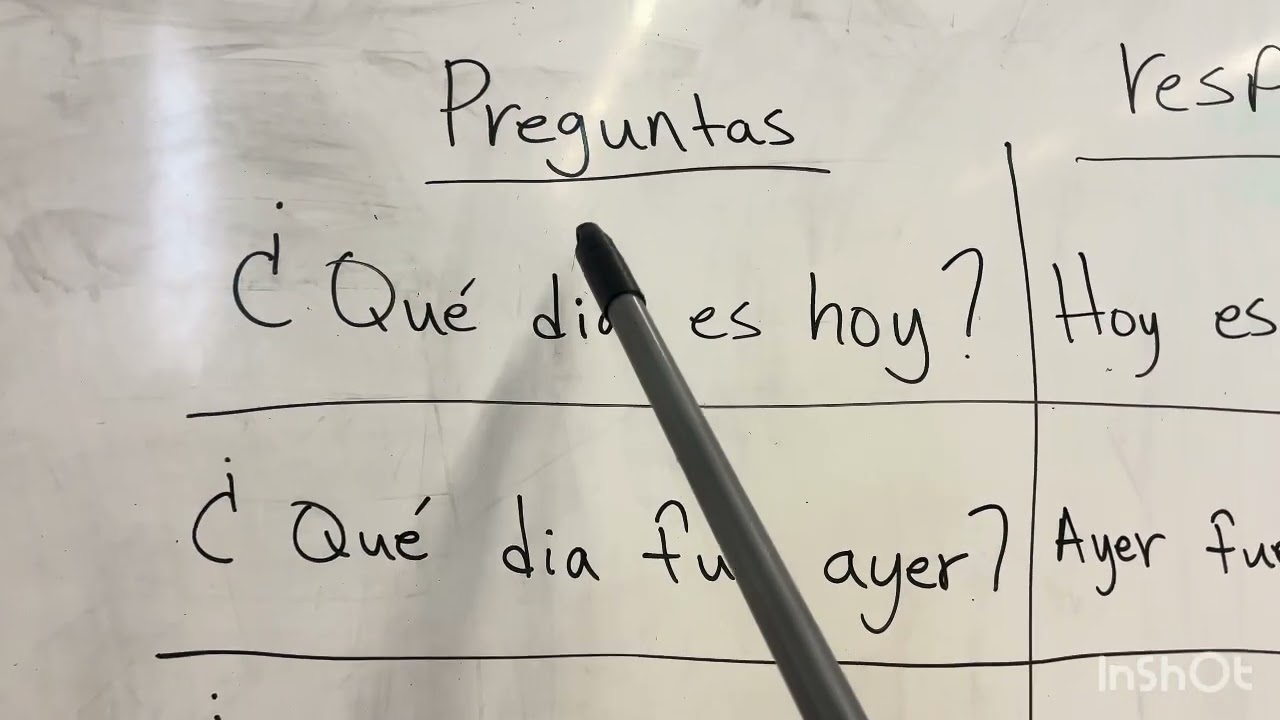 Preguntas
resp
¿ Qué dia es hoy?
Hoy es
¿ Qué dia fu ayer?
Ayer fue
¿
InShOt